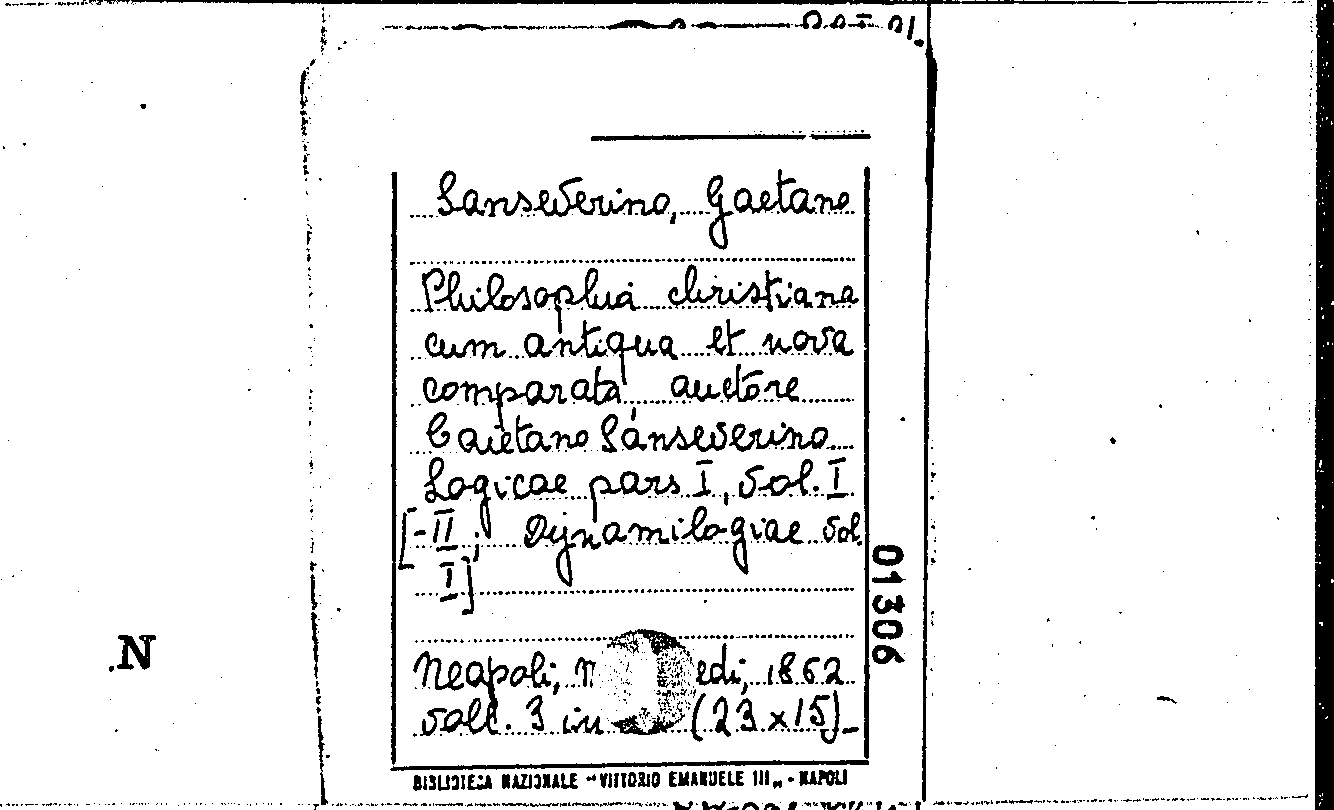 Sanseverino, Gaetano
Philosophia christiana
cum antiqua et nova
comparata, auctore
Caietano Sanseverino
Logicae pars I, Vol. I
[-II; Dynamilogiae Vol.
I]
Neapoli, edi, 1862
Voll. 3 in (23 x 15)-
01306
N
BIBLIOTECA NAZIONALE "VITTORIO EMANUELE III„ - NAPOLI